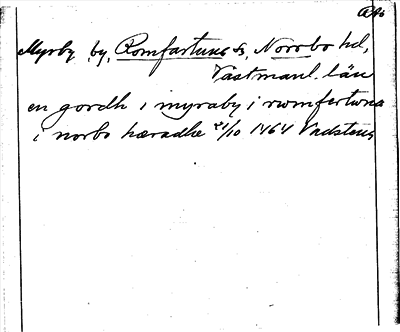 Myrby by, Romfartuna s, Norrbo hd,
Västmanl. län
en gordh i myraby i romfertuna
i norbo hæradhe 21/10 1464 Vadstena